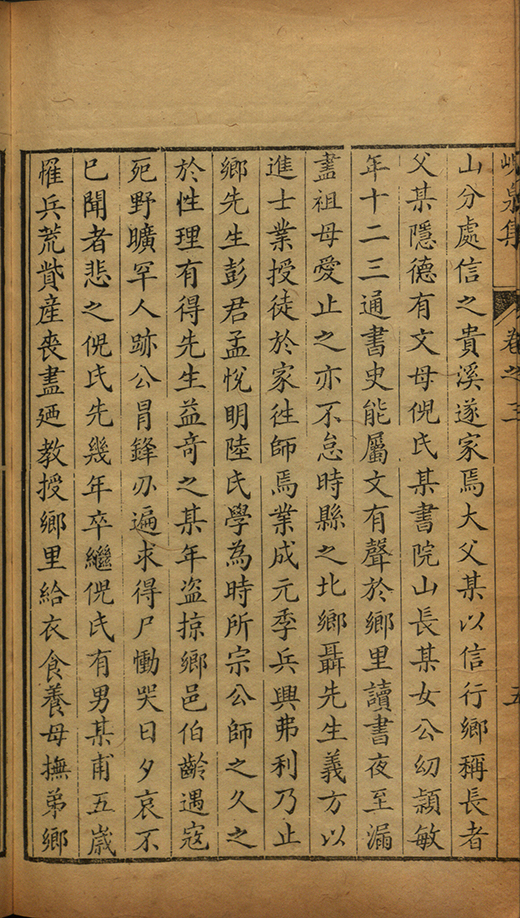 峴泉集 卷之三 五
山分處信之貴溪遂家焉大父某以信行鄉稱長者
父某隱德有文母倪氏某書院山長某女公幼穎敏
年十二三通書史能屬文有聲於鄉里讀書夜至漏
盡祖母愛止之亦不怠時縣之北鄉聶先生義方以
進士業授徒於家往師焉業成元季兵興弗利乃止
鄉先生彭君孟悅明陸氏學為時所宗公師之久之
於性理有得先生益奇之某年盜掠鄉邑伯齡遇寇
死野曠罕人跡公冐鋒刃遍求得尸慟哭日夕哀不
巳聞者悲之倪氏先幾年卒繼倪氏有男某甫五歲
罹兵荒貲産喪盡廼教授鄉里給衣食養母撫弟鄉